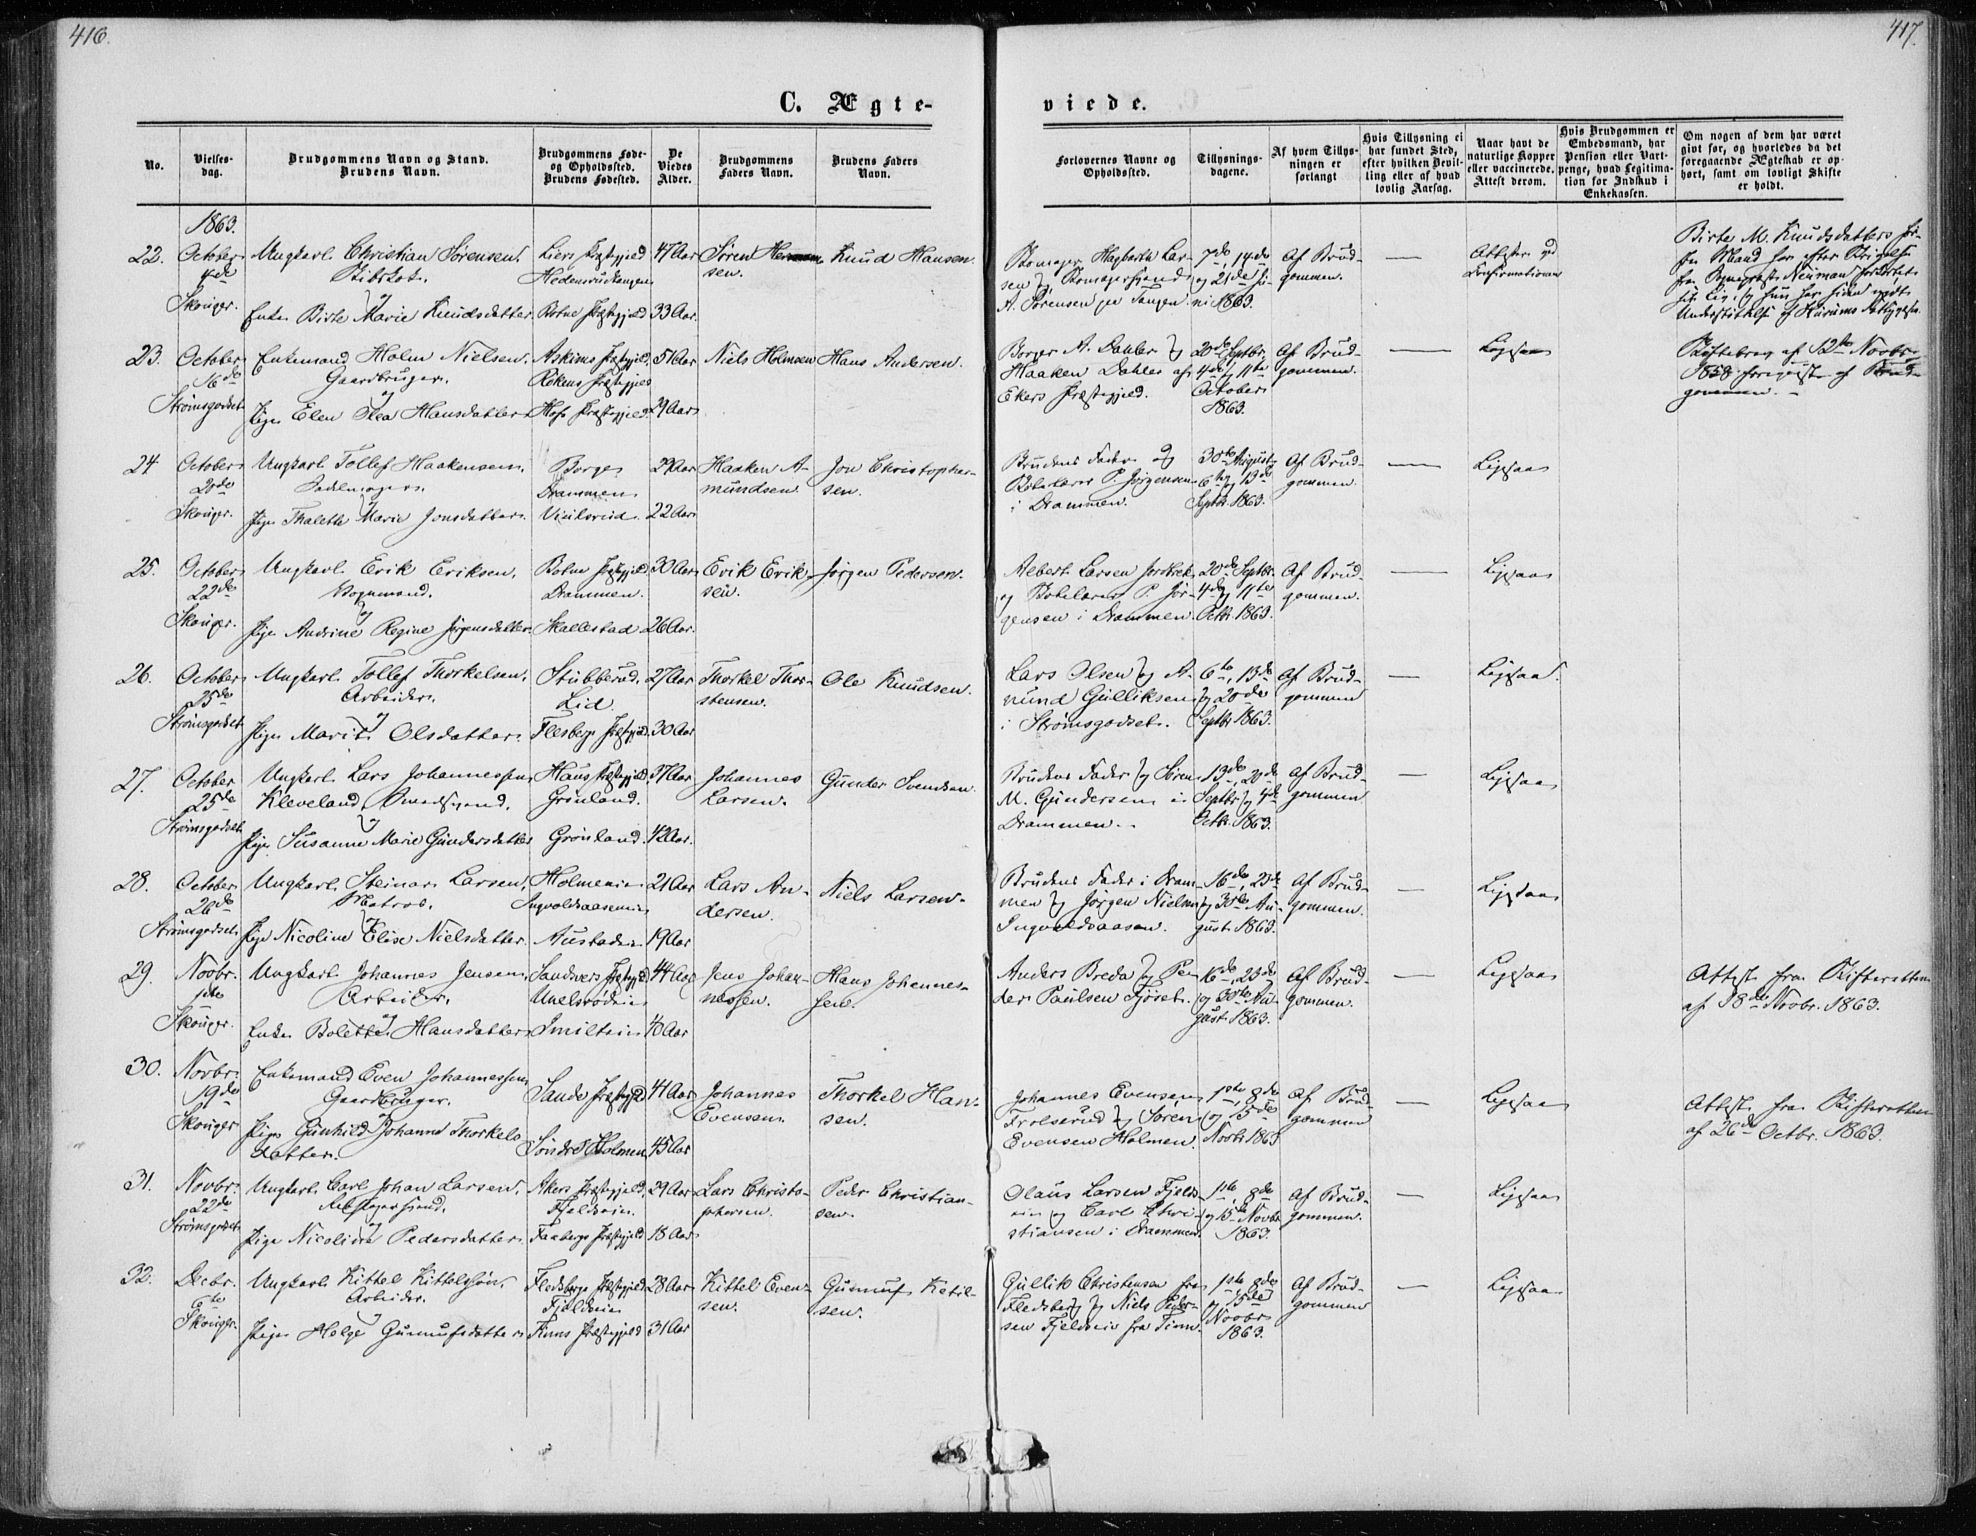 416.
417.
C. Ægte-
viede.
No.
Vielses-
dag.
Brudgommens Navn og Stand.
Brudens Navn.
Brudgommens Føde-
og Opholdssted.
Brudens Fødested.
De
Viedes
Alder.
Brudgommens
Faders Navn.
Brudens Faders
Navn.
Forlovernes Navne og
Opholdssted.
Tillysnings-
dagene.
Af hvem Tillys-
ningen er
forlangt
Hvis Tillysning ei
har fundet Sted,
efter hvilken Bevil-
ling eller af hvad
lovlig Aarsag.
Naar havt de
naturlige Kopper
eller vaccinerede.
Attest derom.
Hvis Brudgommen er
Embedsmand, har
Pension eller Vart-
penge, hvad Legitima-
tion for Indskud i
Enkekassen.
Om nogen af dem har været
givt før, og hvorledes da det
foregaaende Ægteskab er op-
hørt, samt om lovligt Skifte
er holdt.
1863.
22. October 4de Skouger.
Ungkarl Christian Sørensen,
og
Enke Birte Marie Knudsdatter
Liers Præstegjeld
Botne Præstegjeld
47 Aar
33 Aar.
Søren
sen.
Knud Hansen
Hagbarth Lar-
sen og
A. Sørensen paa Tangen
7de, 14de
og 21de Ju-
ni 1863.
Af Brud-
gommen.
Attester ved
Confirmationen
Birte M. Knudsdatters
23. October 16de Strømsgodset
Enkemand Holm Nielsen,
Gaardbruger.
og
Pige Elen Olea Hansdatter
Askims Præstegjeld
Røkens Præstegjeld
Hofs Præstegjeld.
51 Aar
29 Aar
Niels Holmsen
Hans Andersen.
Borger A. Dahler og
Haaken Dahler af
Ekers Præstegjeld.
20de Septbr,
4de og 11te
October
1863.
Af Brud-
gommen.
Ligesaa
Skiftebrev af 12te Novbr.
1858 forevist af Brud-
gommen.
24 October 20de Skouger.
Ungkarl Tollef Haakensen,
og
Pige Thalette Marie Jonsdatter.
Borge
Drammen
29 Aar
22 Aar
Haaken A-
mundsen.
Jon Christopher-
sen.
Brudens Fader og
P. Jørgensen
i Drammen.
30te August,
6te og 13de
Septbr. 1863.
Af Brud-
gommen.
Ligesaa
25. October 22de Skouger.
Ungkarl Erik Eriksen,
Vognmand.
og
Pige Andrine Regine Jørgensdatter
Botne Præstegjeld,
Drammen.
Skallestad
30 Aar
26 Aar.
Erik Erik-
sen.
Jørgen Pedersen.
Albert Larsen
og P. Jør-
gensen i Drammen.
20de Septbr.
4de og 11te
Octbr. 1863.
Af Brud-
gommen.
Ligesaa
26. October 25de Strømsgodset
Ungkarl Tollef Thorkelsen,
Arbeider.
og
Pige Marit Olsdatter.
Stubberud,
Lid.
Flesberg Præstegjeld
27 Aar
30 Aar
Thorkel Thor-
stensen.
Ole Knudsen.
Lars Olsen og A-
mund Gulliksen
i Strømsgodset.
6te, 13de
og 20de
Septbr 1863.
Af Brud-
gommen
Ligesaa.
27. October 25de Strømsgodset
Ungkarl Lars Johannessen
Kleveland,
og
Pige Susanne Marie Gundersdatter
Haus Præstegjeld
Grønland.
Grønland.
37 Aar
42 Aar.
Johannes
Larsen.
Gunder Svendsen.
Brudens Fader og Søren
M. Gundersen i
Drammen.
13de, 20de
Septbr og 4de
Octbr. 1863.
Af Brud-
gommen
Ligesaa
28. October 26de Strømsgodset
Ungkarl Steinar Larsen,
Matros.
og
Pige Nicoline Elise Nielsdatter
Holmeneie
Ingvoldsaasen
Austadeie
21 Aar
19 Aar
Lars An-
dersen.
Niels Larsen.
Brudens Fader i Dram-
men og Jørgen Nielsen
Ingvaldsaasen.
16de, 23de
og 30te Au-
gust 1863.
Af Brud-
gommen.
Ligesaa
29. Novbr. 1ste Skouger.
Ungkarl Johannes Jensen
Arbeider.
og
Enke Bolette Hansdatter
Sandsvers Præstegjeld
Smiltein
44 Aar
40 Aar
Jens Johan-
nessen.
Hans Johannes-
sen.
Anders Breda og Pe-
der Paulsen Fjøset.
16de, 23de
og 30te Au-
gust 1863.
Af Brud-
gommen.
Ligesaa
Attest fra Skifteretten
af 18de Novbr. 1863.
30. Novbr. 19de Skouger
Enkemand Even Johannessen
Gaardbruger.
og
Pige Gunhild Johanne Thorkels
datter.
Sande Præstegjeld
Søndre Holmen
41 Aar
45 Aar
Johannes
Evensen.
Thorkel Han-
sen.
Johannes Evensen
og Søren
Evensen Holmen.
1ste, 8de
og 15de
Novbr 1863
Af Brud-
gommen
Ligesaa
Attest fra Skifteretten
af 26de Octbr. 1863.
31. Novbr. 22de Strømsgodset
Ungkarl Carl Johan Larsen,
og
Pige Nicoline Pedersdatter
Akers Præstegjeld,
Fjeldeie.
Faabergs Præstegjeld
29 Aar
18 Aar
Lars Christo-
phersen.
Peder Christian-
sen.
Olaus Larsen Fjeld-
eie og Carl Chri-
stiansen i Drammen
1ste, 8de
og 15de Novbr
1863.
Af Brud-
gommen.
Ligesaa
32. Decbr. 6te Skouger.
Ungkarl Kittel Kittelsøn,
Arbeider.
og
Pige Helge Gunnufsdatter
Flesberg Præstegjeld
Fjeldeie
Tinns Præstegjeld
28 Aar
31 Aar
Kittel Even-
sen.
Gunnuf Ketil-
sen.
Gullik Christensen fra
Flesberg og Niels Peder-
sen Fjeldeie fra Tinn.
1ste, 8de
og 15de
Novbr
1863.
Af Brud-
gommen
Ligesaa